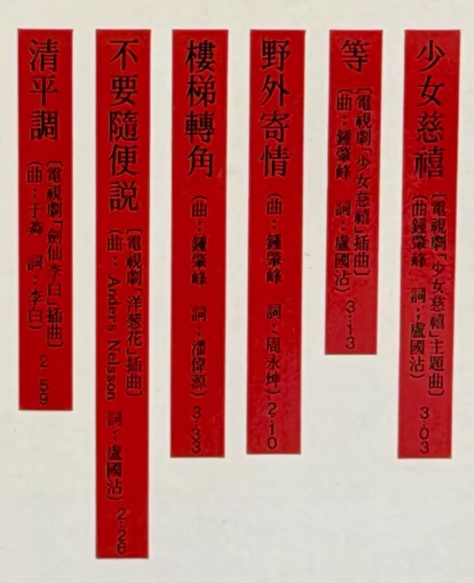 少女慈禧
〔電視劇「少女慈禧」主題曲〕
（曲：鍾肇峰　詞：盧國沾）
3:03
等
〔電視劇「少女慈禧」插曲〕
（曲：鍾肇峰　詞：盧國沾）
3:13
野外寄情
（曲：鍾肇峰　詞：周永坤）2:10
樓梯轉角
（曲：鍾肇峰　詞：潘偉源）3:33
不要隨便説
〔電視劇「洋葱花」插曲〕
（曲：Anders Nelsson　詞：盧國沾）
2:26
清平調
〔電視劇「劍仙李白」插曲〕
（曲：于粦　詞：李白）
2:59